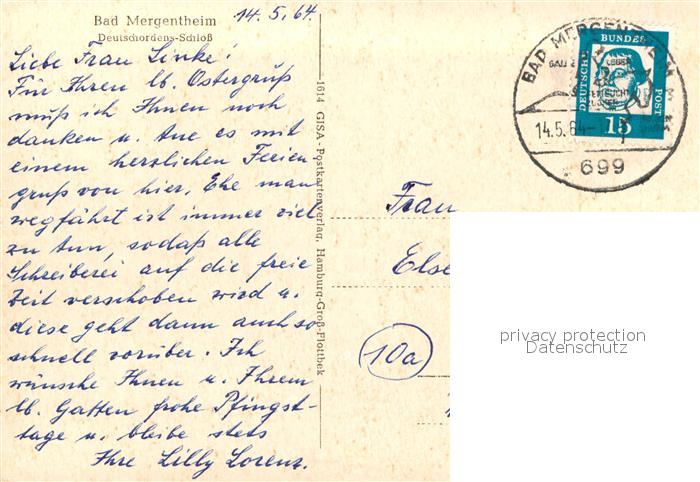 Bad Mergentheim
Deutschordens-Schloß
14.5.64.
Liebe Frau Linke!
Für Ihren lb. Ostergruß
muß ich Ihnen noch
danken u. tue es mit
einem herzlichen Ferien-
gruß von hier. Ehe man
wegfährt ist immer viel
zu tun, sodaß alle
Schreiberei auf die freie
Zeit verschoben wird u.
diese geht dann auch so
schnell vorüber. Ich
wünsche Ihnen u. Ihrem
lb. Gatten frohe Pfingst-
tage u. bleibe stets
Ihre Lilly Lorenz.
1614 GISA-Postkartenverlag, Hamburg-Groß-Flottbek
BAD MERGENTHEIM
14.5.64
699
DEUTSCHE
BUNDES
POST
15
Frau
Else
10a
privacy protection
Datenschutz